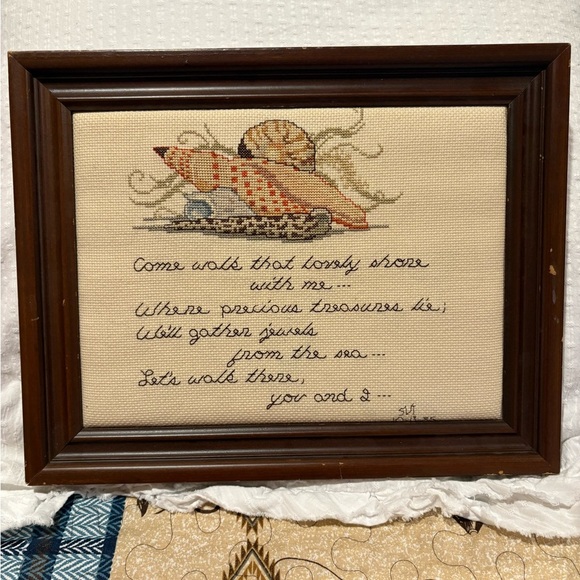 Come walk that lovely shore
with me ---
Where precious treasures lie;
We'll gather jewels
from the sea ---
Let's walk there,
you and I ---